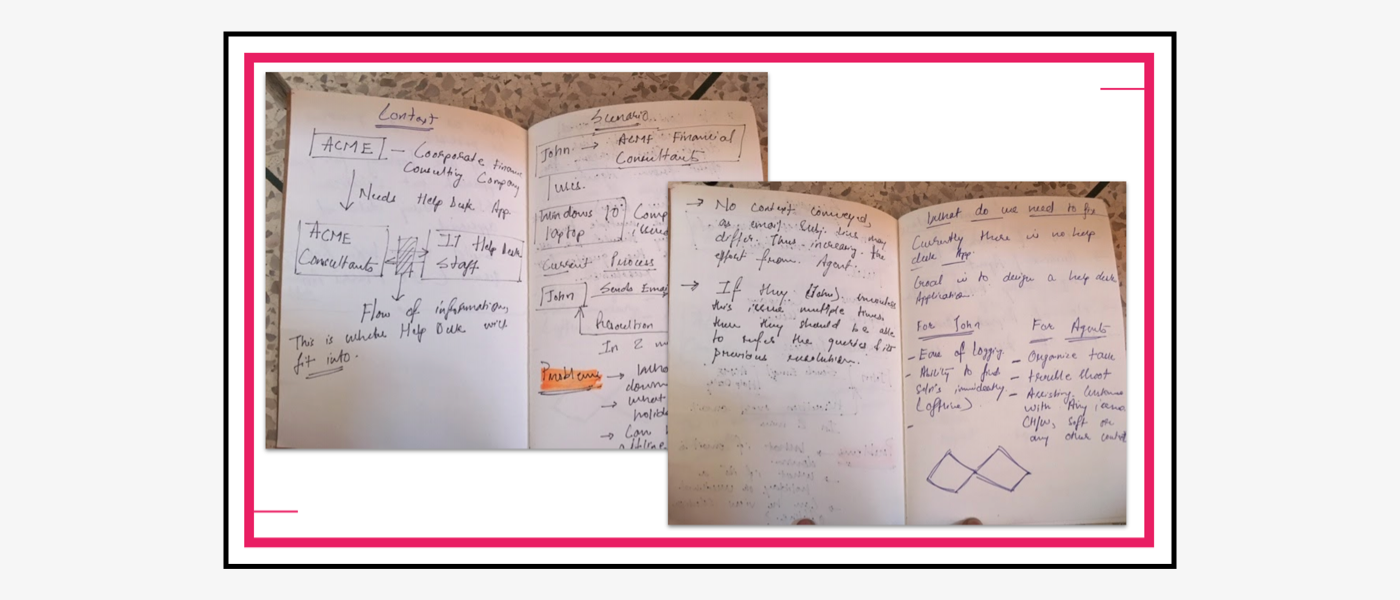 Context
ACME — Coorporate Finance
Consulting Company
Needs Help Desk App
ACME
Consultants
IT Help Desk
Staff
Flow of information
This is where Help Desk will
fit into.
Scenario
John → ACME Financial
Consultants
uses.
Windows 10
laptop
Comp
issue
Current Process
John Sends Emai
Resolution
In 2
Problem → 
down
→ what
holid
→ Can
→ No context conveyed,
as email subj. lines may
differ. Thus increasing the
effort from Agent.
→ If they (John)
this issue multiple times
then they should be able
to refer the queries & its
previous resolution.
What do we need to fix
Currently there is no help
desk App.
Goal is to design a help desk
Application.
For John
- Ease of logging
- Ability to find
soln's immidiately
(offline)
-
For Agents
- Organise task
- trouble shoot
- Assisting Customer
with Any issue
(H/w, Soft or
any other